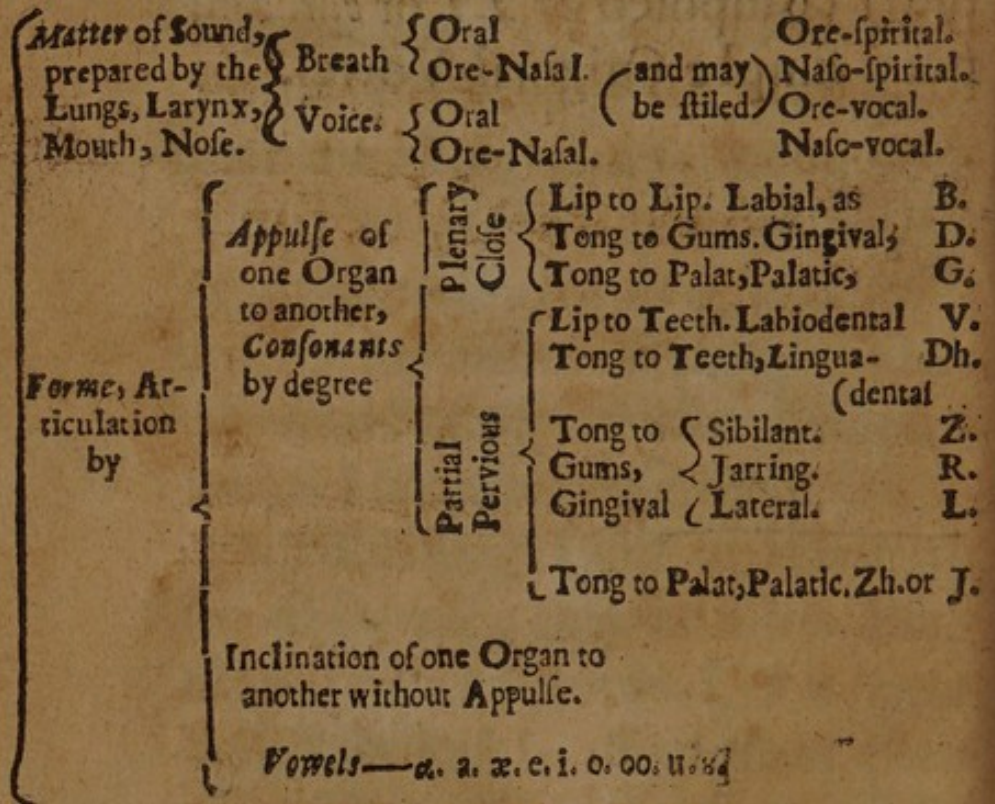 Matter of Sound,
prepared by the
Lungs, Larynx,
Mouth, Noſe.
Breath
Voice.
Oral
Ore-Naſal.
Oral
Ore-Naſal.
(and may
be ſtiled)
Ore-ſpirital.
Naſo-ſpirital.
Ore-vocal.
Naſo-vocal.
Forme, Ar-
ticulation
by
Appulſe of
one Organ
to another,
Conſonants
by degree
Plenary
Cloſe
Lip to Lip. Labial, as B.
Tong to Gums. Gingival, D.
Tong to Palat, Palatic, G.
Partial
Pervious
Lip to Teeth. Labiodental V.
Tong to Teeth, Lingua- Dh.
(dental
Tong to
Gums,
Gingival
Sibilant. Z.
Jarring. R.
Lateral. L.
Tong to Palat, Palatic. Zh. or J.
Inclination of one Organ to
another without Appulſe.
Vowels—α. a. æ. e. i. o. oo. u. 8.